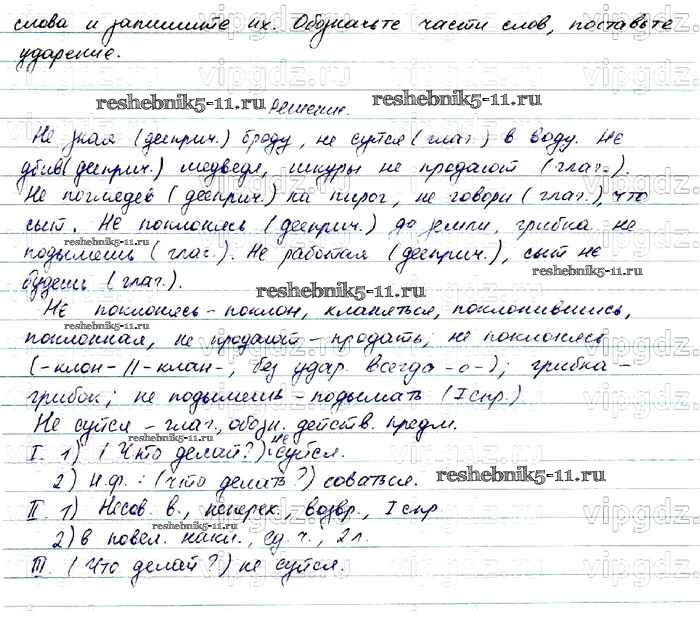 слова и запишите их. Обозначьте части слов, поставьте
ударение.
reshebnik5-11.ru
reshebnik5-11.ru
Решение.
Не зная (дееприч.) броду, не суйся (глаг.) в воду. Не
убив (дееприч.) медведя, шкуры не продают (глаг.).
Не поглядев (дееприч.) на пирог, не говори (глаг.), что
сыт. Не поклонясь (дееприч.) до земли, грибка не
подымешь (глаг.). Не работая (дееприч.), сыт не
будешь (глаг.).
Не поклонясь – поклон, кланяться, поклонившись,
поклонная, не продают – продать; не поклонясь
(-клон- // -клан-, без удар. всегда -о-); грибка –
грибок; не подымешь – подымать (I спр.)
Не суйся – глаг., обозн. действ. предм.
I. 1) (Что делай?) не суйся.
2) Н.ф.: (что делать?) соваться.
II. 1) Несов. в., неперех., возвр., I спр
2) в повел. накл., ед. ч., 2 л.
III. (Что делай?) не суйся.
reshebnik5-11.ru
reshebnik5-11.ru
reshebnik5-11.ru
reshebnik5-11.ru
reshebnik5-11.ru
reshebnik5-11.ru
vipgdz.ru